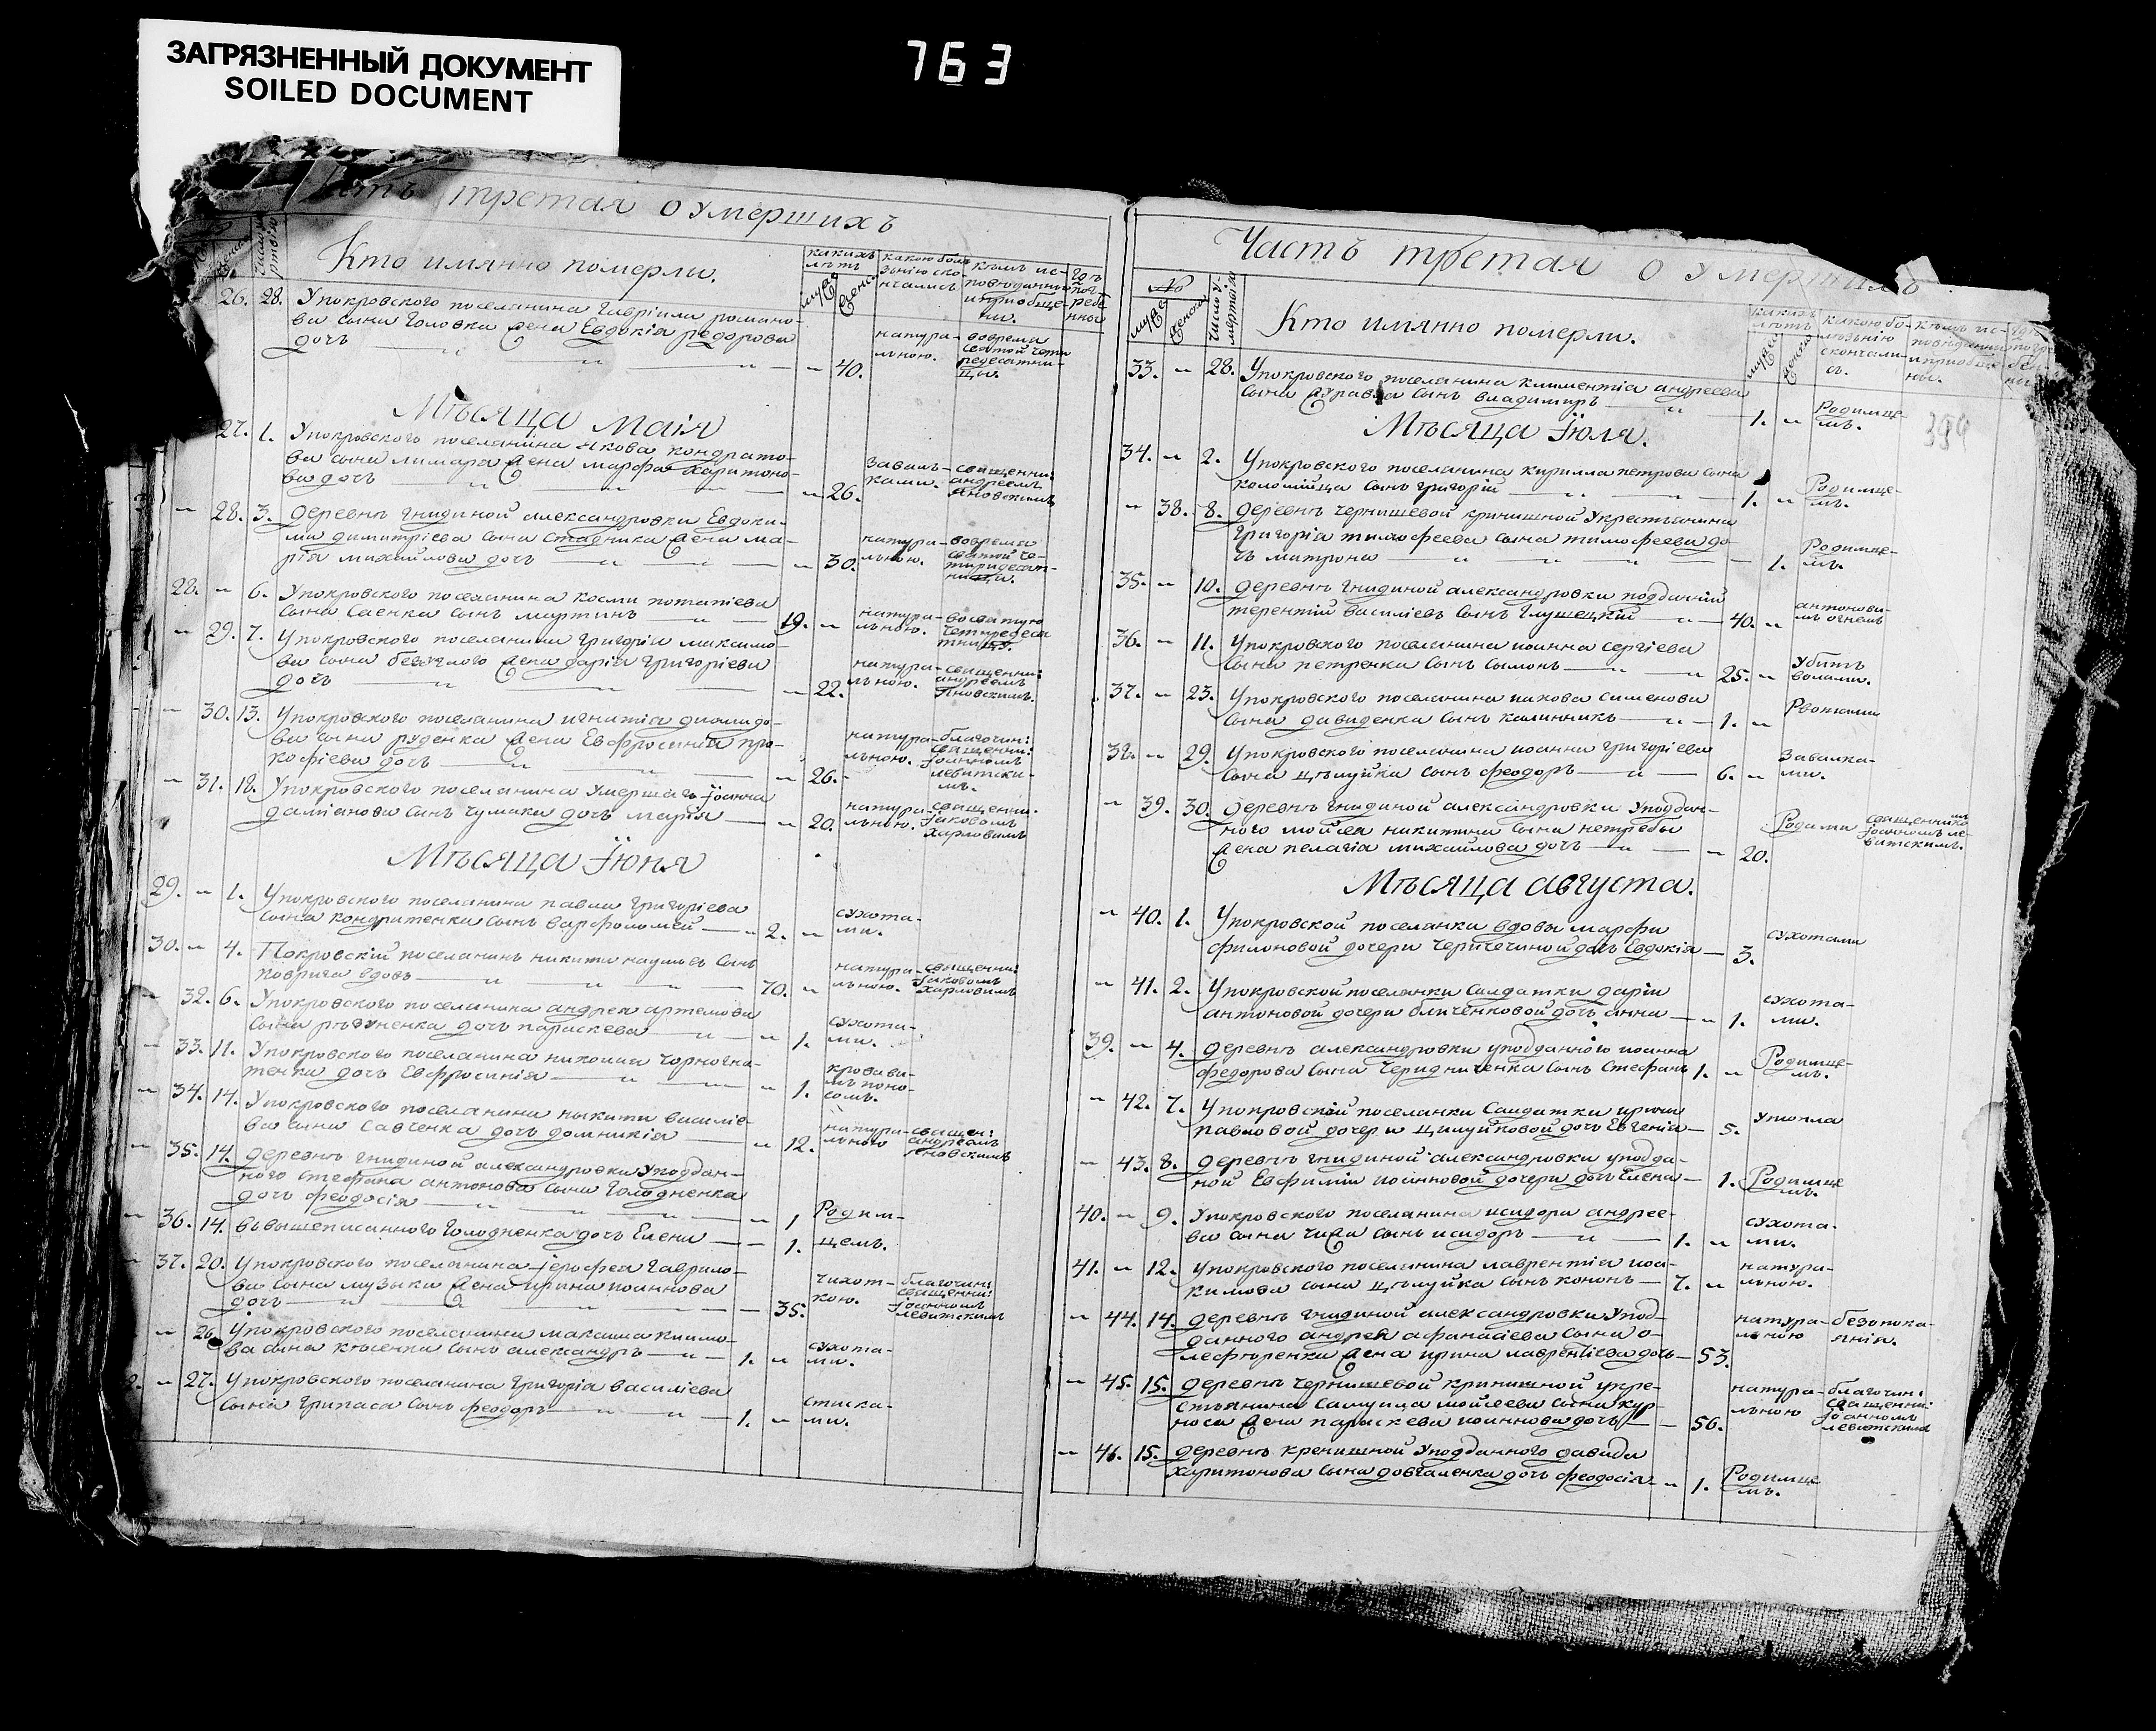 ЗАГРЯЗНЕННЫЙ ДОКУМЕНТ
SOILED DOCUMENT
763
третая о умершихъ
Кто имянно померли.
26. 28. Упокровского поселянина Гавріила романо-
ва сына Головка жена Евдокія федорова
дочь 40. натура-льною. вовремя святой чети редесятни-цы.
Мѣсяца Маія
27. 1. Упокровского поселянина Якова кондрато-
ва сына лимаря жена марфа харитоно-
ва дочь 26. Завалъ-ками. священни: андреемъ Яновскимъ
28. 3. деревнѣ гнидиной александровки Евдоки-
ма димитріева сына стадника жена ма-
рія михайлова дочь 30. натура-льною. вовремя святой че-тиридесят-ници.
28. 6. Упокровского поселянина космы потапіева
сына Саенка сынъ мартинъ 19. натура-льною. восвятую четиредеся тницу.
29. 7. Упокровского поселянина григорія максимо-
ва сына беглого жена дарія григоріева
дочь 22. натура-льною. священни: андреемъ Яновскимъ.
30. 13. Упокровского поселянина игнатія диомидо-
ва сына руденка жена Евфросинія про-
кофіева дочь 26. натура-льною. благочин: священни: Іоанномъ левитски-мъ.
31. 18. Упокровского поселянина умершаго Іоанна
даміанова сынъ чумака дочь марія 20. натура-льною. священни. Іаковомъ харловимъ
Мѣсяца Іюня
29. 1. Упокровского поселянина павла григоріева
сына кондратенка сынъ варфоломей 2. сухота-ми.
30. 4. Покровскій поселянинъ никита наумовъ сынъ
коврига вдовъ 70. натура-льною. священни: Іаковомъ харловимъ
32. 6. Упокровского поселянина андрея артемова
сына дочь параскева 1. сухота-ми.
33. 11. Упокровского поселянина николая чорногла-
тенка дочь Евфросинія 1. кровави-мъ поно-сомъ.
34. 14. Упокровского поселянина никити василіе-
ва сина Савченка дочь домникія 12. натура-льною священ: андреемъ Яновскимъ
35. 14. деревнѣ гнидиной александровки Уподдан-
ного стефана антонова сына голодненка
дочь феодосія 1 Родим-
36. 14. вывышеписанного голодненка дочь Елена 1. цемъ.
37. 20. Упокровского поселянина Іерофея гаврило-
ва сына музыки жена ирина иоаннова
дочь 35. чихот-кою. благочин: священни: Іоанномъ левитскимъ
26. Упокровского поселянина максима климо-
ва сына сынъ александръ 1. сухота-ми.
27. Упокровского поселянина григорія василіева
сына Грипаса сынъ феодоръ 1. стиска-ми.
Часть третая о умершихъ
Кто имянно померли.
394
33. 28. Упокровского поселянина климентія андреева
сына журавля сынъ владимиръ 1. Родимце-мъ.
Мѣсяца Іюля.
34. 2. Упокровского поселянина кирилла петрова сына
коломійца сынъ григорій 1. Родимце-мъ.
38. 8. деревнѣ чернишевой кринишной Укрестьянина
Григорія тимофеева сына тимофеева до-
чь матрона 1. Родимце-мъ.
35. 10. деревнѣ гнидиной александровки подданій
терентій василіевъ сынъ глушецкій 40. антонови-мъ огнемъ
36. 11. Упокровского поселянина иоанна сергіева
сына петренка сынъ сымонъ 25. убитъ волами.
37. 23. Упокровского поселянина иакова сименова
сына давиденка сынъ калинникъ 1. Рвотами
38. 29. Упокровского поселянина иоанна григоріева
сына цѣлуйка сынъ феодоръ 6. Завалка-ми.
39. 30. деревнѣ гнидиной александровки уподдан-
ного мойсея никитина сына нетребы
жена пелагія михайлова дочь 20. Родами священникомъ Іоанномъ ле-витскимъ.
Мѣсяца августа.
40. 1. Упокровской поселянки вдовы марфи
филоновой дочери дочь Евдокія 3. сухотами
41. 2. Упокровской поселянки Салдатки даріи
антоновой дочери бличенковой дочь анна 1. сухота-ми.
39. 4. деревнѣ александровки уподданного иоанна
федорова сына чередниченка сынъ стефанъ 1. Родимце-мъ.
42. 7. Упокровской поселянки Салдатки ирини
павловой дочери цилуйковой дочь Евгенія 5. утопла
43. 8. деревнѣ гнидиной александровки уподда-
ной Евфиміи иоанновой дочери дочь Елена 1. Родимце мъ.
40. 9. Упокровского поселянина исидора андрее-
ва сына чижа сынъ исидоръ 1. сухота-ми.
41. 12. Упокровского поселянина лаврентія иоа-
кимова сына цѣлуйка сынъ кононъ 7. натура-льною.
44. 14. деревнѣ гнидиной александровки Упод-
данного андрея афанасіева сына о-
лефѣренка жена ирина лаврентіева дочь 53. натура-льною безопока-янія.
45. 15. деревнѣ чернишевой кринишной укре-
стьянина самуила мойсеева сына кур-
носа жена параскева иоаннова дочь 56. натура-льною благочин: священни: Іоанномъ левитскимъ
46. 15. деревнѣ кренишной Уподданного давида
харитонова сына довгаленка дочь феодосія 1. Родимце мъ.